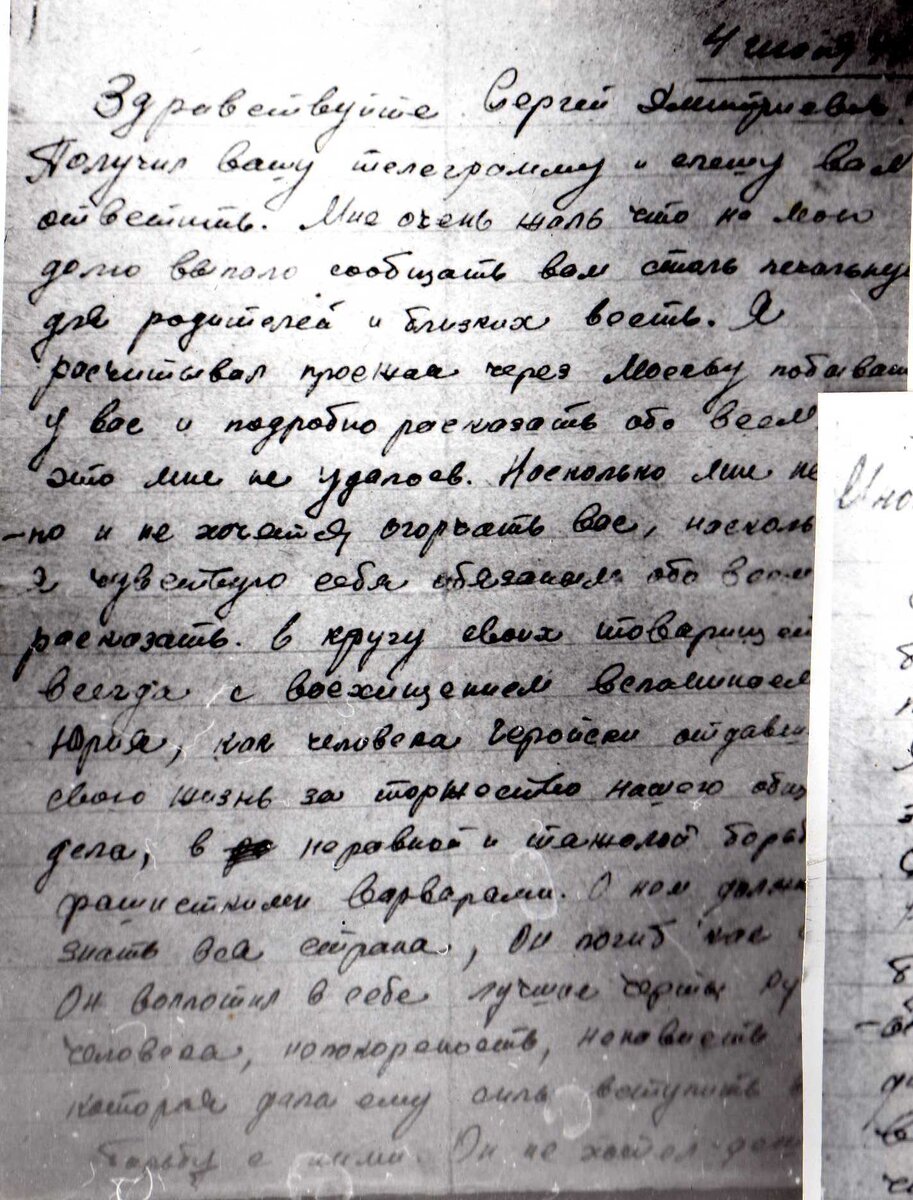 4 июня
Здравствуйте Сергей Дмитриевич!
Получил вашу телеграмму и спешу вам
ответить. Мне очень жаль что на мою
долю выпало сообщать вам столь печальную
для родителей и близких весть. Я
расчитывал проезжая через Москву побывать
у вас и подробно рассказать обо всем
это мне не удалось. Насколько мне не
-но и не хочется огорчать вас, насколь
я чувствую себя обязаным обо всем
расказать. В кругу своих товарищей
всегда с восхищением вспоминаем
Юрия, как человека геройски отдавш
свою жизнь за торжество нашего общ
дела, в неравной и тяжолой борьб
фашисткими варварами. О нем должн
знать вся страна, Он погиб как
Он воплотил в себе лучшие черты ру
человека, непокорность, ненависть
которая дала ему силы вступить в
борьбу с ними. Он не хотел